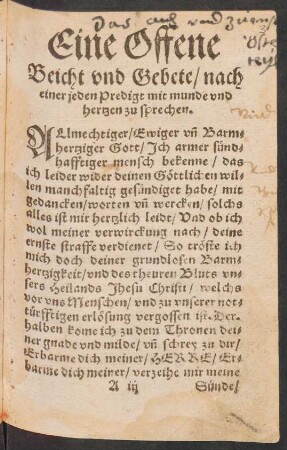 Das auch vnd
Eine Offene
Beicht vnd Gebete/ nach
einer jeden Predigt mit munde vnd
hertzen zu sprechen.
ALlmechtiger/ Ewiger vñ Barm-
hertziger Gott/ Ich armer sünd-
hafftiger mensch bekenne/ das
ich leider wider deinen Göttlichen wil-
len manchfaltig gesündiget habe/ mit
gedancken/ worten vñ wercken/ solchs
alles ist mir hertzlich leidt/ Vnd ob ich
wol meiner verwirckung nach/ deine
ernste straffe verdienet/ So tröste ich
mich doch deiner grundlosen Barm-
hertzigkeit/ vnd des theuren Bluts vn-
sers Heilands Jhesu Christi/ welchs
vor vns Menschen/ vnd zu vnserer not-
türfftigen erlösung vergossen ist. Der-
halben kome ich zu dem Thronen dei-
ner gnade vnd milde/ vñ schrey zu dir/
Erbarme dich meiner/ HERRE/ Er-
barme dich meiner/ verzeihe mir meine
A iij Sünde/